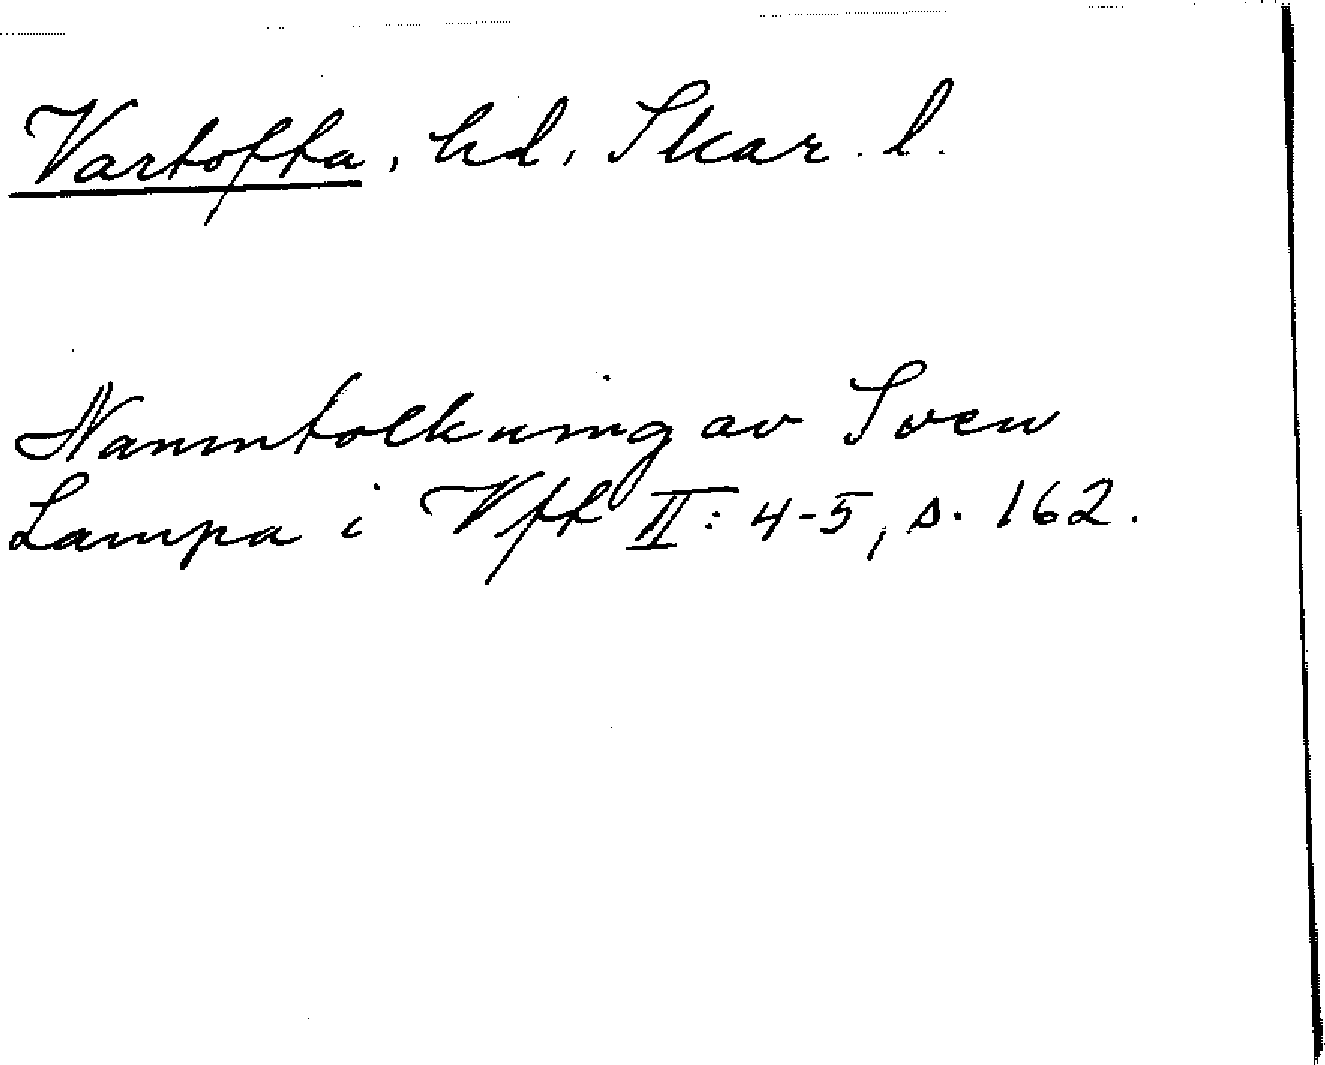 Vartofta, hd, Skar. l.
Namntolkning av Sven
Lampa i Vft II: 4-5, s. 162.